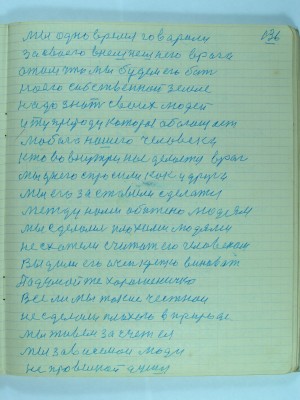 136
мы одно время говорили
за своего внешнего врага
о том что мы будем его бить
на его собственной земле
надо знать своих людей
и ту природу которая обогащает
любого нашего человека
кто во внутри нас делается враг
мы у него просили как у друга
мы его заставили сделать
между нами обижено людям
мы сделали плохими людями
не схотели считать его человеком
Вы дили его и через это виноват
Подумайте хорошенечко
Все ли мы такие честные
не сделали плохого в природе
мы живем за счет ея
мы зависимые люди
не проверенной